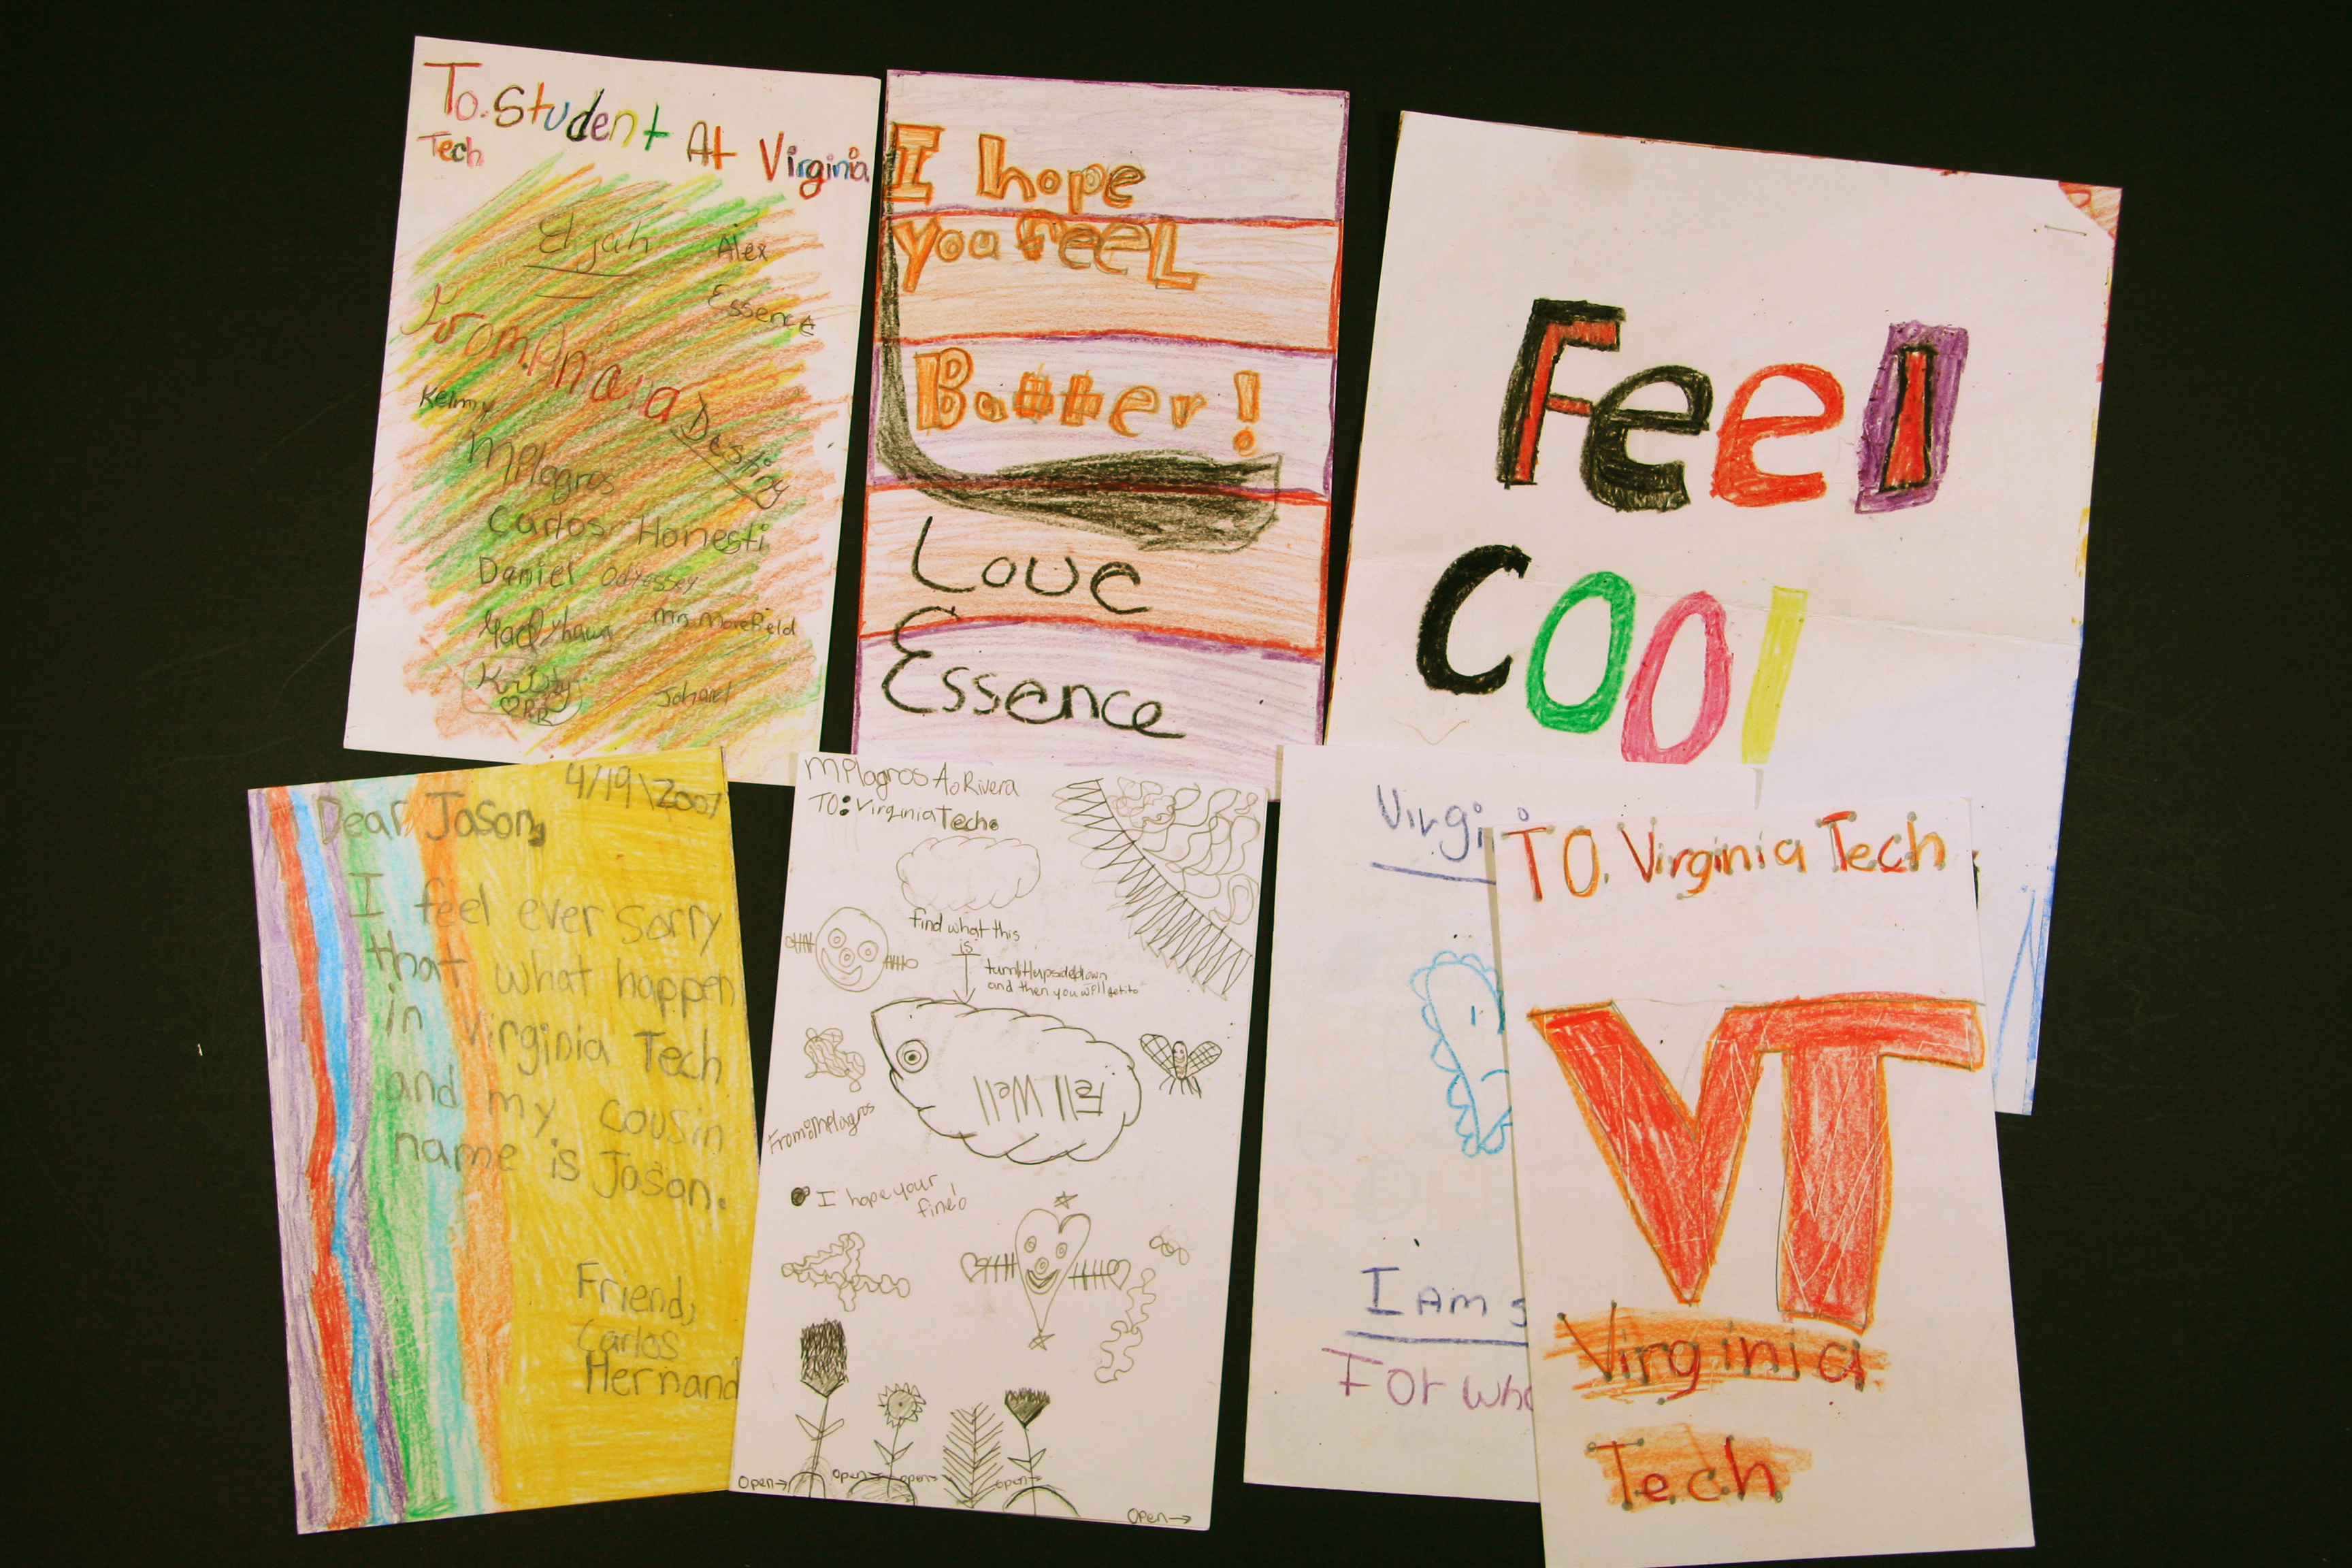 To: Student At Virginia
Tech
Elijah
Alex
Essence
From: Aniaia
Kelmy
Destiny
MPlagros
Carlos Honesti
Daniel Odyessey
Mrs. Morefield
Kristy
RR
Johanel
I hope
you feel
Batter!
Love
Essence
Feel
Cool
4/19\2007
Dear Jason,
I feel ever sorry
that what happen
in Virginia Tech
and my cousin
name is Jason.
Friend,
Carlos
Hernand
MPlagros A. Rivera
TO: Virginia Tech.
find what this
is
turn it upsidedown
and then you will get it
Fell Well
From: MPlagros
I hope your
fine!
Open→
Open→
open→
open→
Open→
Virgi
I Am s
For wha
TO. Virginia Tech
VT
Virginia
Tech